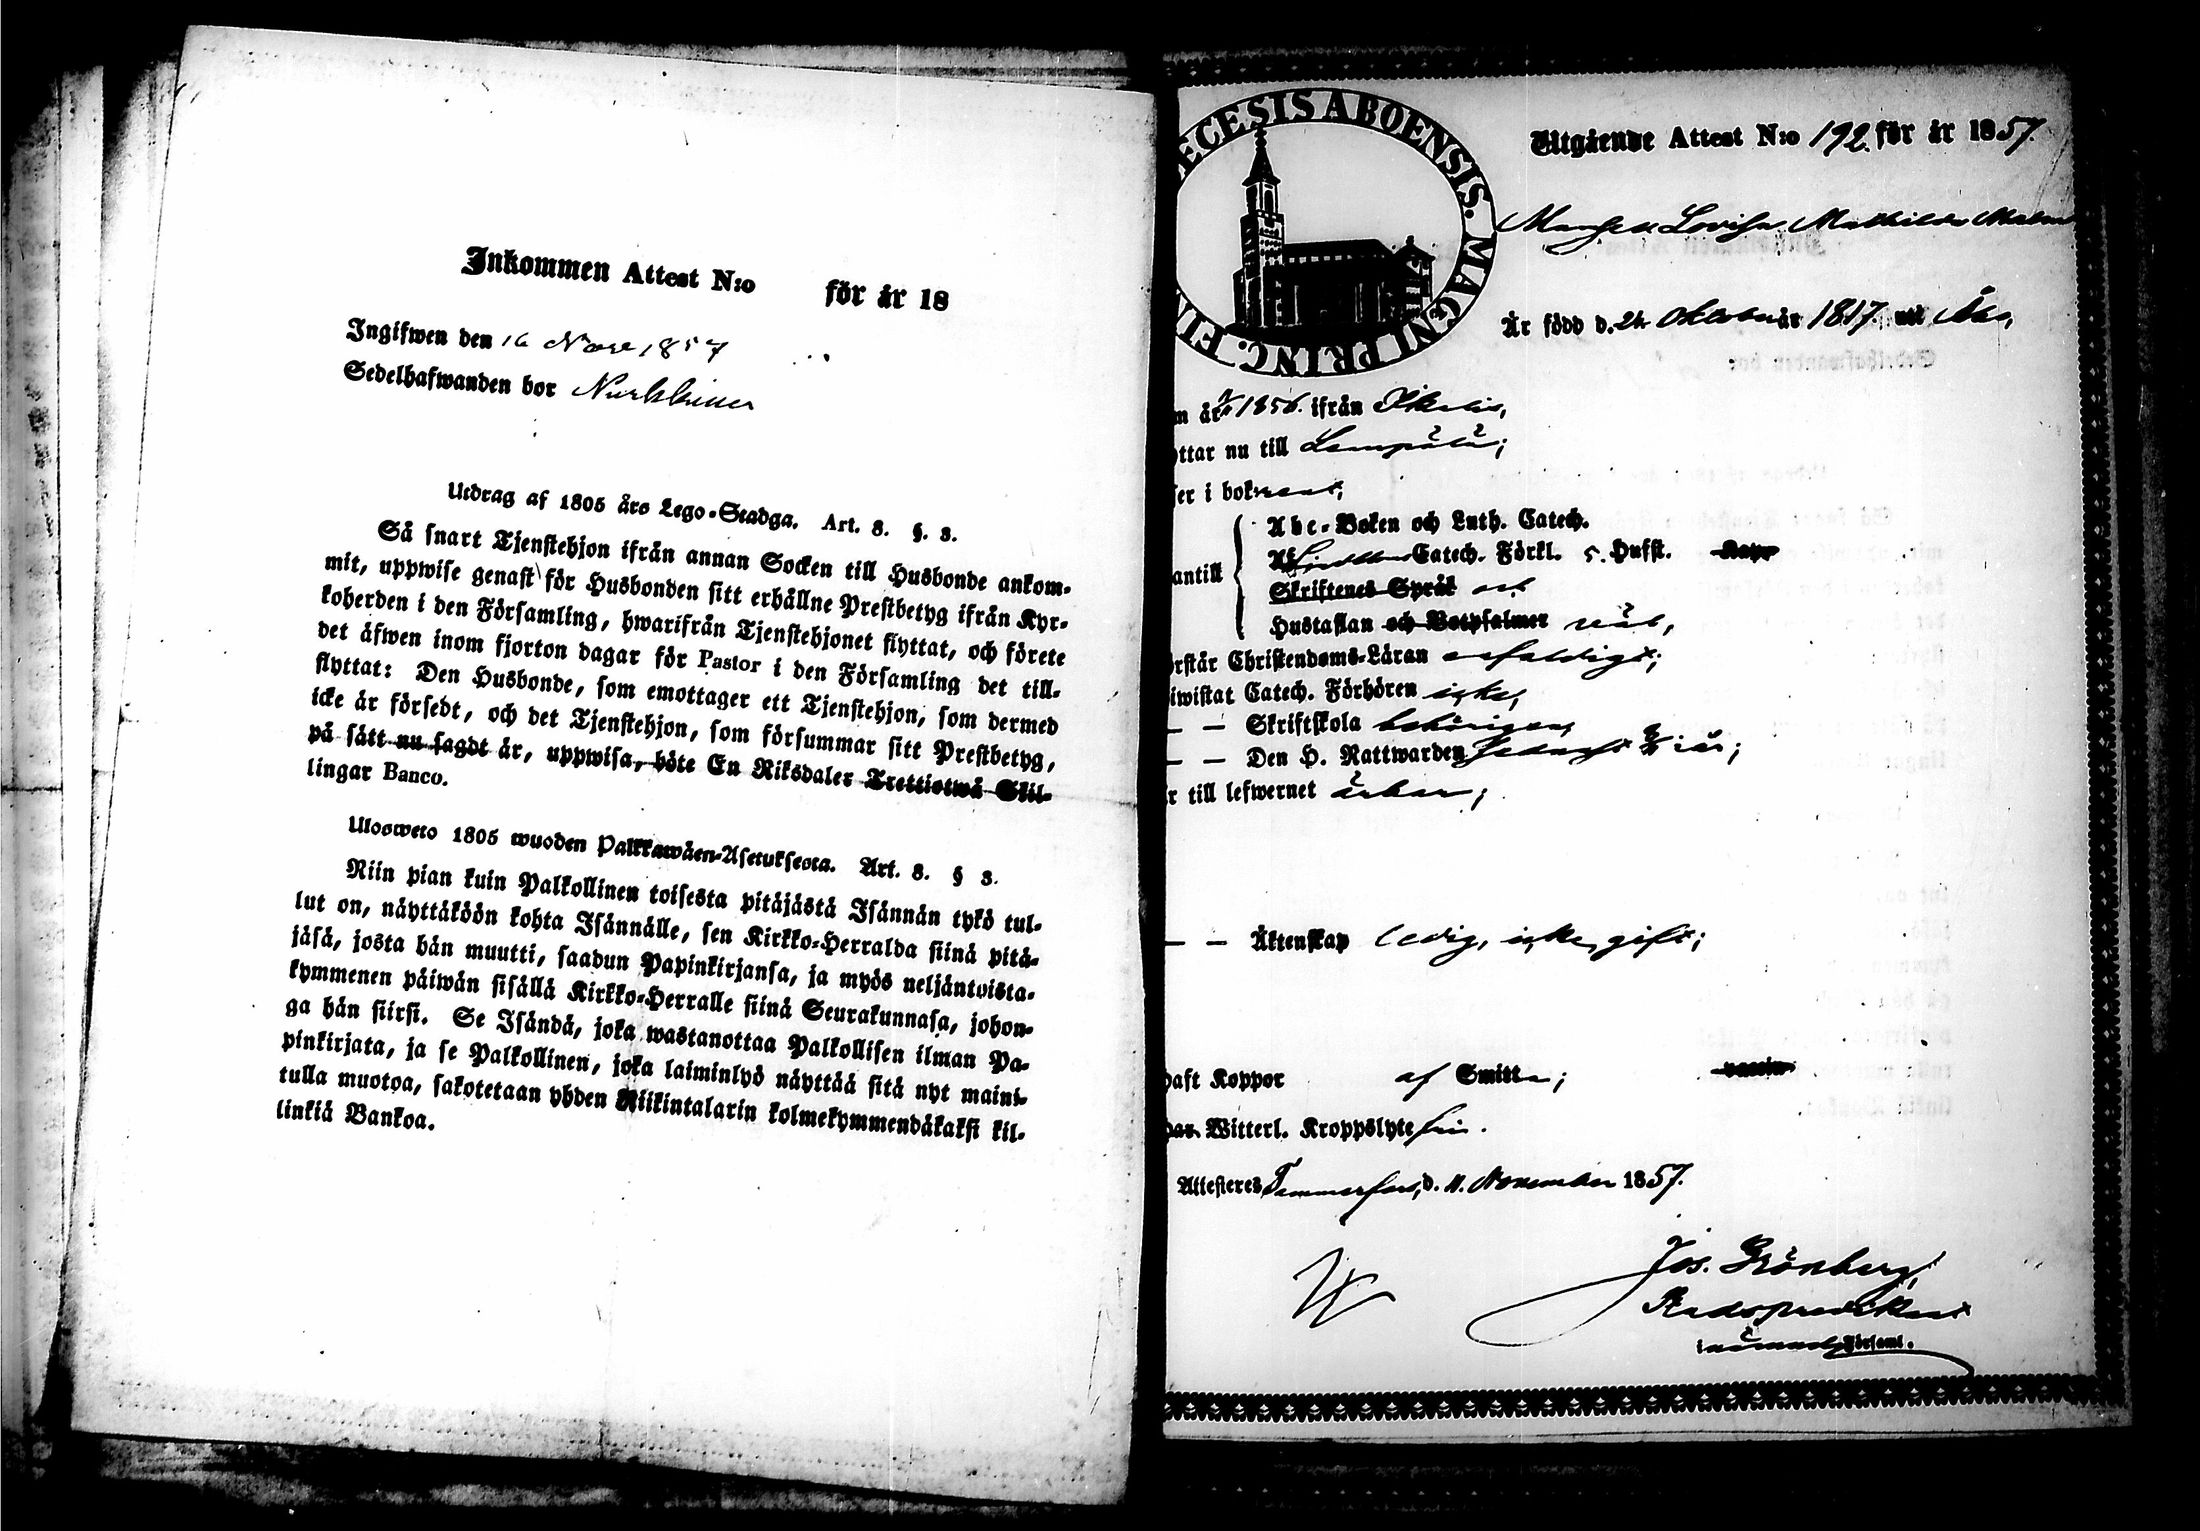 Inkommen Attest N:o för år 18
Ingifwen den 16 Nov 1857
Sedelhafwanden bor
Utdrag af 1805 års Lego-Stadga. Art. 8. §. 3.
Så snart Tjenstehjon ifrån annan Socken till Husbonde ankom-
mit, uppwise genast för Husbonden sitt erhållne Prestbetyg ifrån Kyr-
koherden i den Församling, hwarifrån Tjenstehjonet flyttat, och förete
det äfwen inom fjorton dagar för Pastor i den Församling det till-
flyttat: Den Husbonde, som emottager ett Tjenstehjon, som dermed
icke är försedt, och det Tjenstehjon, som försummar sitt Prestbetyg,
på sätt nu sagdt är, uppwisa, böte En Riksdaler Trettiotwå Skil-
lingar Banco.
Ulosweto 1805 wuoden Palkkawäen-Asetuksesta. Art. 8. § 3.
Niin pian kuin Palkollinen toisesta pitäjästä Isännän tykö tul-
lut on, näyttäköön kohta Isännälle, sen Kirkko-Herralda siinä pitä-
jäsä, josta hän muutti, saadun Papinkirjansa, ja myös neljäntoista-
kymmenen päiwän sisällä Kirkko-Herralle siinä Seurakunnasa, johon-
ga hän siirsi. Se Isändä, joka wastanottaa Palkollisen ilman Pa-
pinkirjata, ja se Palkollinen, joka laiminlyö näyttää sitä nyt maini-
tulla muotoa, sakotetaan yhden Riikintalarin kolmekymmendäkaksi kil-
linkiä Bankoa.
ECESIS ABOENSIS. MAGNI PRINC. FIN
Utgående Attest N:o 192 för år 1857.
Lovisa Mathilda
Är född d. 24 Oktober år 1817 uti Åbo,
m år 1856. ifrån Ikalis,
ottar nu till Lempälä;
ser i bok
Abc-Boken och Luth. Catech.
antill Catech. Förkl. 5. Hufst.
Skriftenes Språk och
Hustaflan och Botpsalmer nöjb,
örstår Christendoms-Läran enfaldigt;
iwistat Catech. Förhören icke,
— — Skriftskola behörigen,
— — Den H. Nattwarden i år;
r till lefwernet ärbar;
— — Äktenskap ledig, icke gift;
haft Koppor af Smitta;
har Witterl. Kroppslyte fri.
Attesteres Tammerfors, d. 11. November 1857.
Jos. Grönberg,
Stadspredikant
Församl.